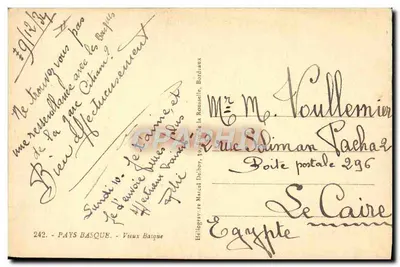 9/12/
Ne trouvez vous pas
une ressemblance avec les Basques
de la
Bien affectueusement
Lundi 10. Je t'aime, et
je t'envoie mes plus
affectueux
242. - PAYS BASQUE. - Vieux Basque
Heliogravure Marcel Delboy, Bordeaux
Mr M. Voullemier
2 rue Soliman Pacha 2
Boite postale 296
Le Caire
Egypte
CPARAMA